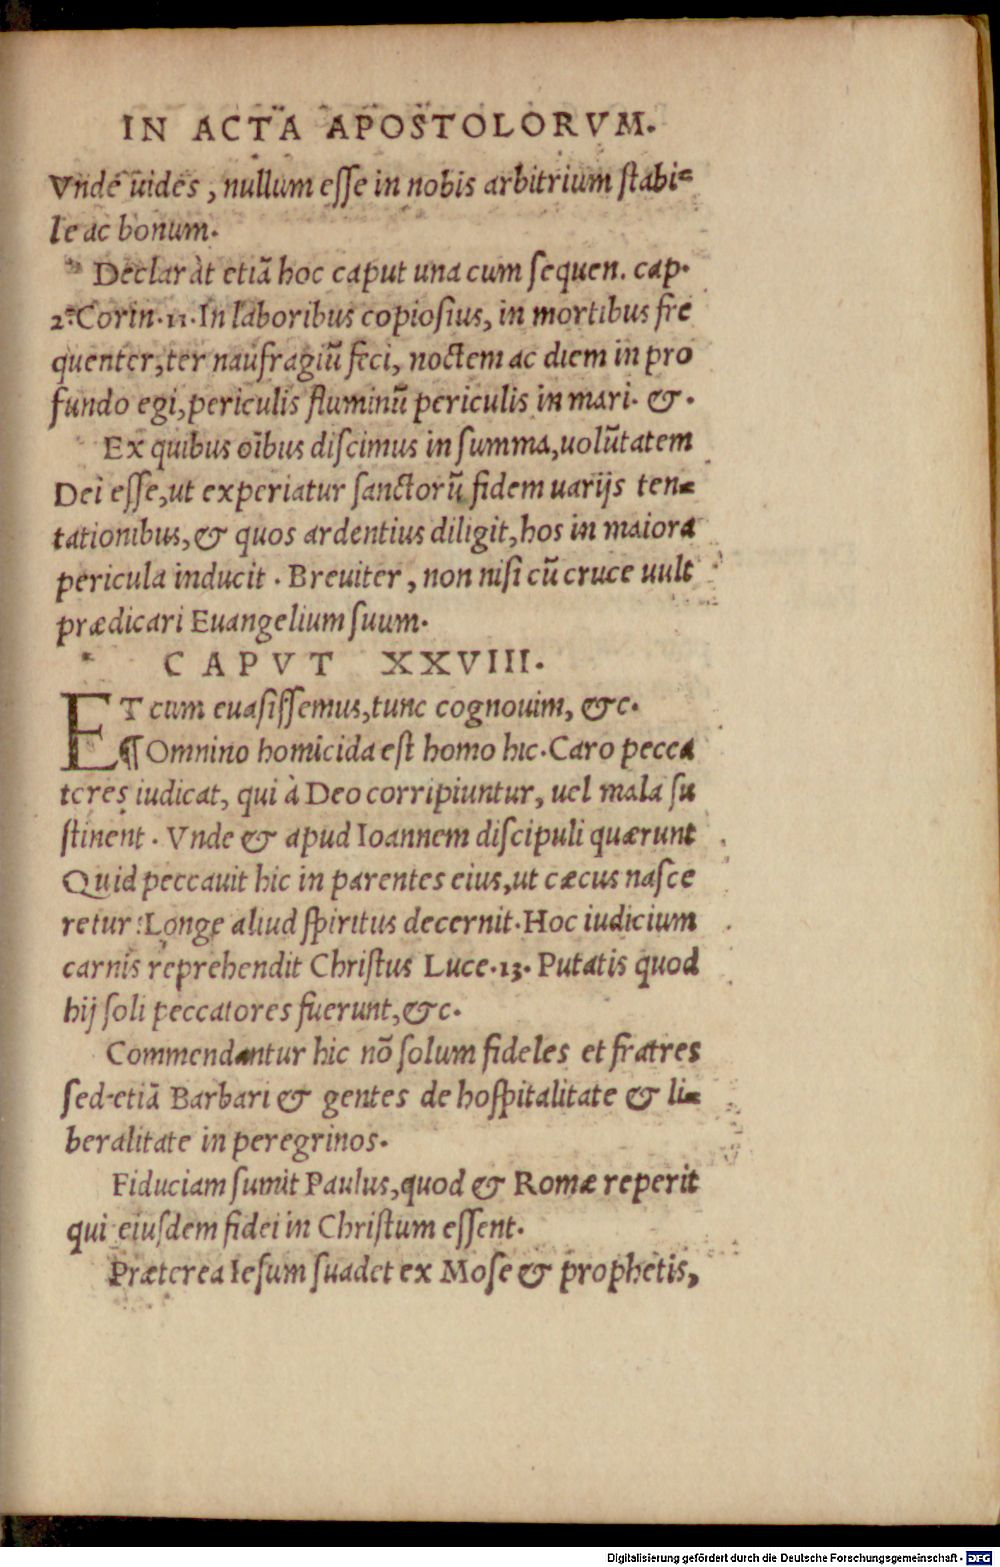 IN ACTA APOSTOLORVM.
Vnde uides, nullum esse in nobis arbitrium stabi=
le ac bonum.
Declarāt etiā hoc caput una cum sequen. cap.
2. Corin. 11. In laboribus copiosius, in mortibus fre
quenter, ter naufragiū feci, noctem ac diem in pro
fundo egi, periculis fluminū periculis in mari. &.
Ex quibus oībus discimus in summa, uolūtatem
Dei esse, ut experiatur sanctorū fidem uarijs ten=
tationibus, & quos ardentius diligit, hos in maiora
pericula inducit. Breuiter, non nisi cū cruce uult
prædicari Euangelium suum.
CAPVT XXVIII.
ET cum euasissemus, tunc cognouim, &c.
¶ Omnino homicida est homo hic. Caro pecca
tores iudicat, qui à Deo corripiuntur, uel mala su
stinent. Vnde & apud Ioannem discipuli quærunt
Quid peccauit hic in parentes eius, ut cæcus nasce
retur: Longe aliud spiritus decernit. Hoc iudicium
carnis reprehendit Christus Luce. 13. Putatis quod
hij soli peccatores fuerunt, &c.
Commendantur hic nō solum fideles et fratres
sed etiā Barbari & gentes de hospitalitate & li=
beralitate in peregrinos.
Fiduciam sumit Paulus, quod & Romæ reperit
qui eiusdem fidei in Christum essent.
Præterea Iesum suadet ex Mose & prophetis,
Digitalisierung gefördert durch die Deutsche Forschungsgemeinschaft - DFG